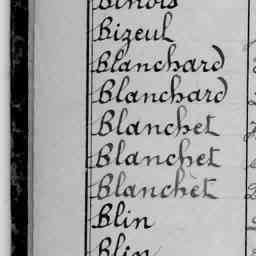 Binois
Bizeul
Blanchard
Blanchard
Blanchet
Blanchet
Blanchet
Blin
Blin